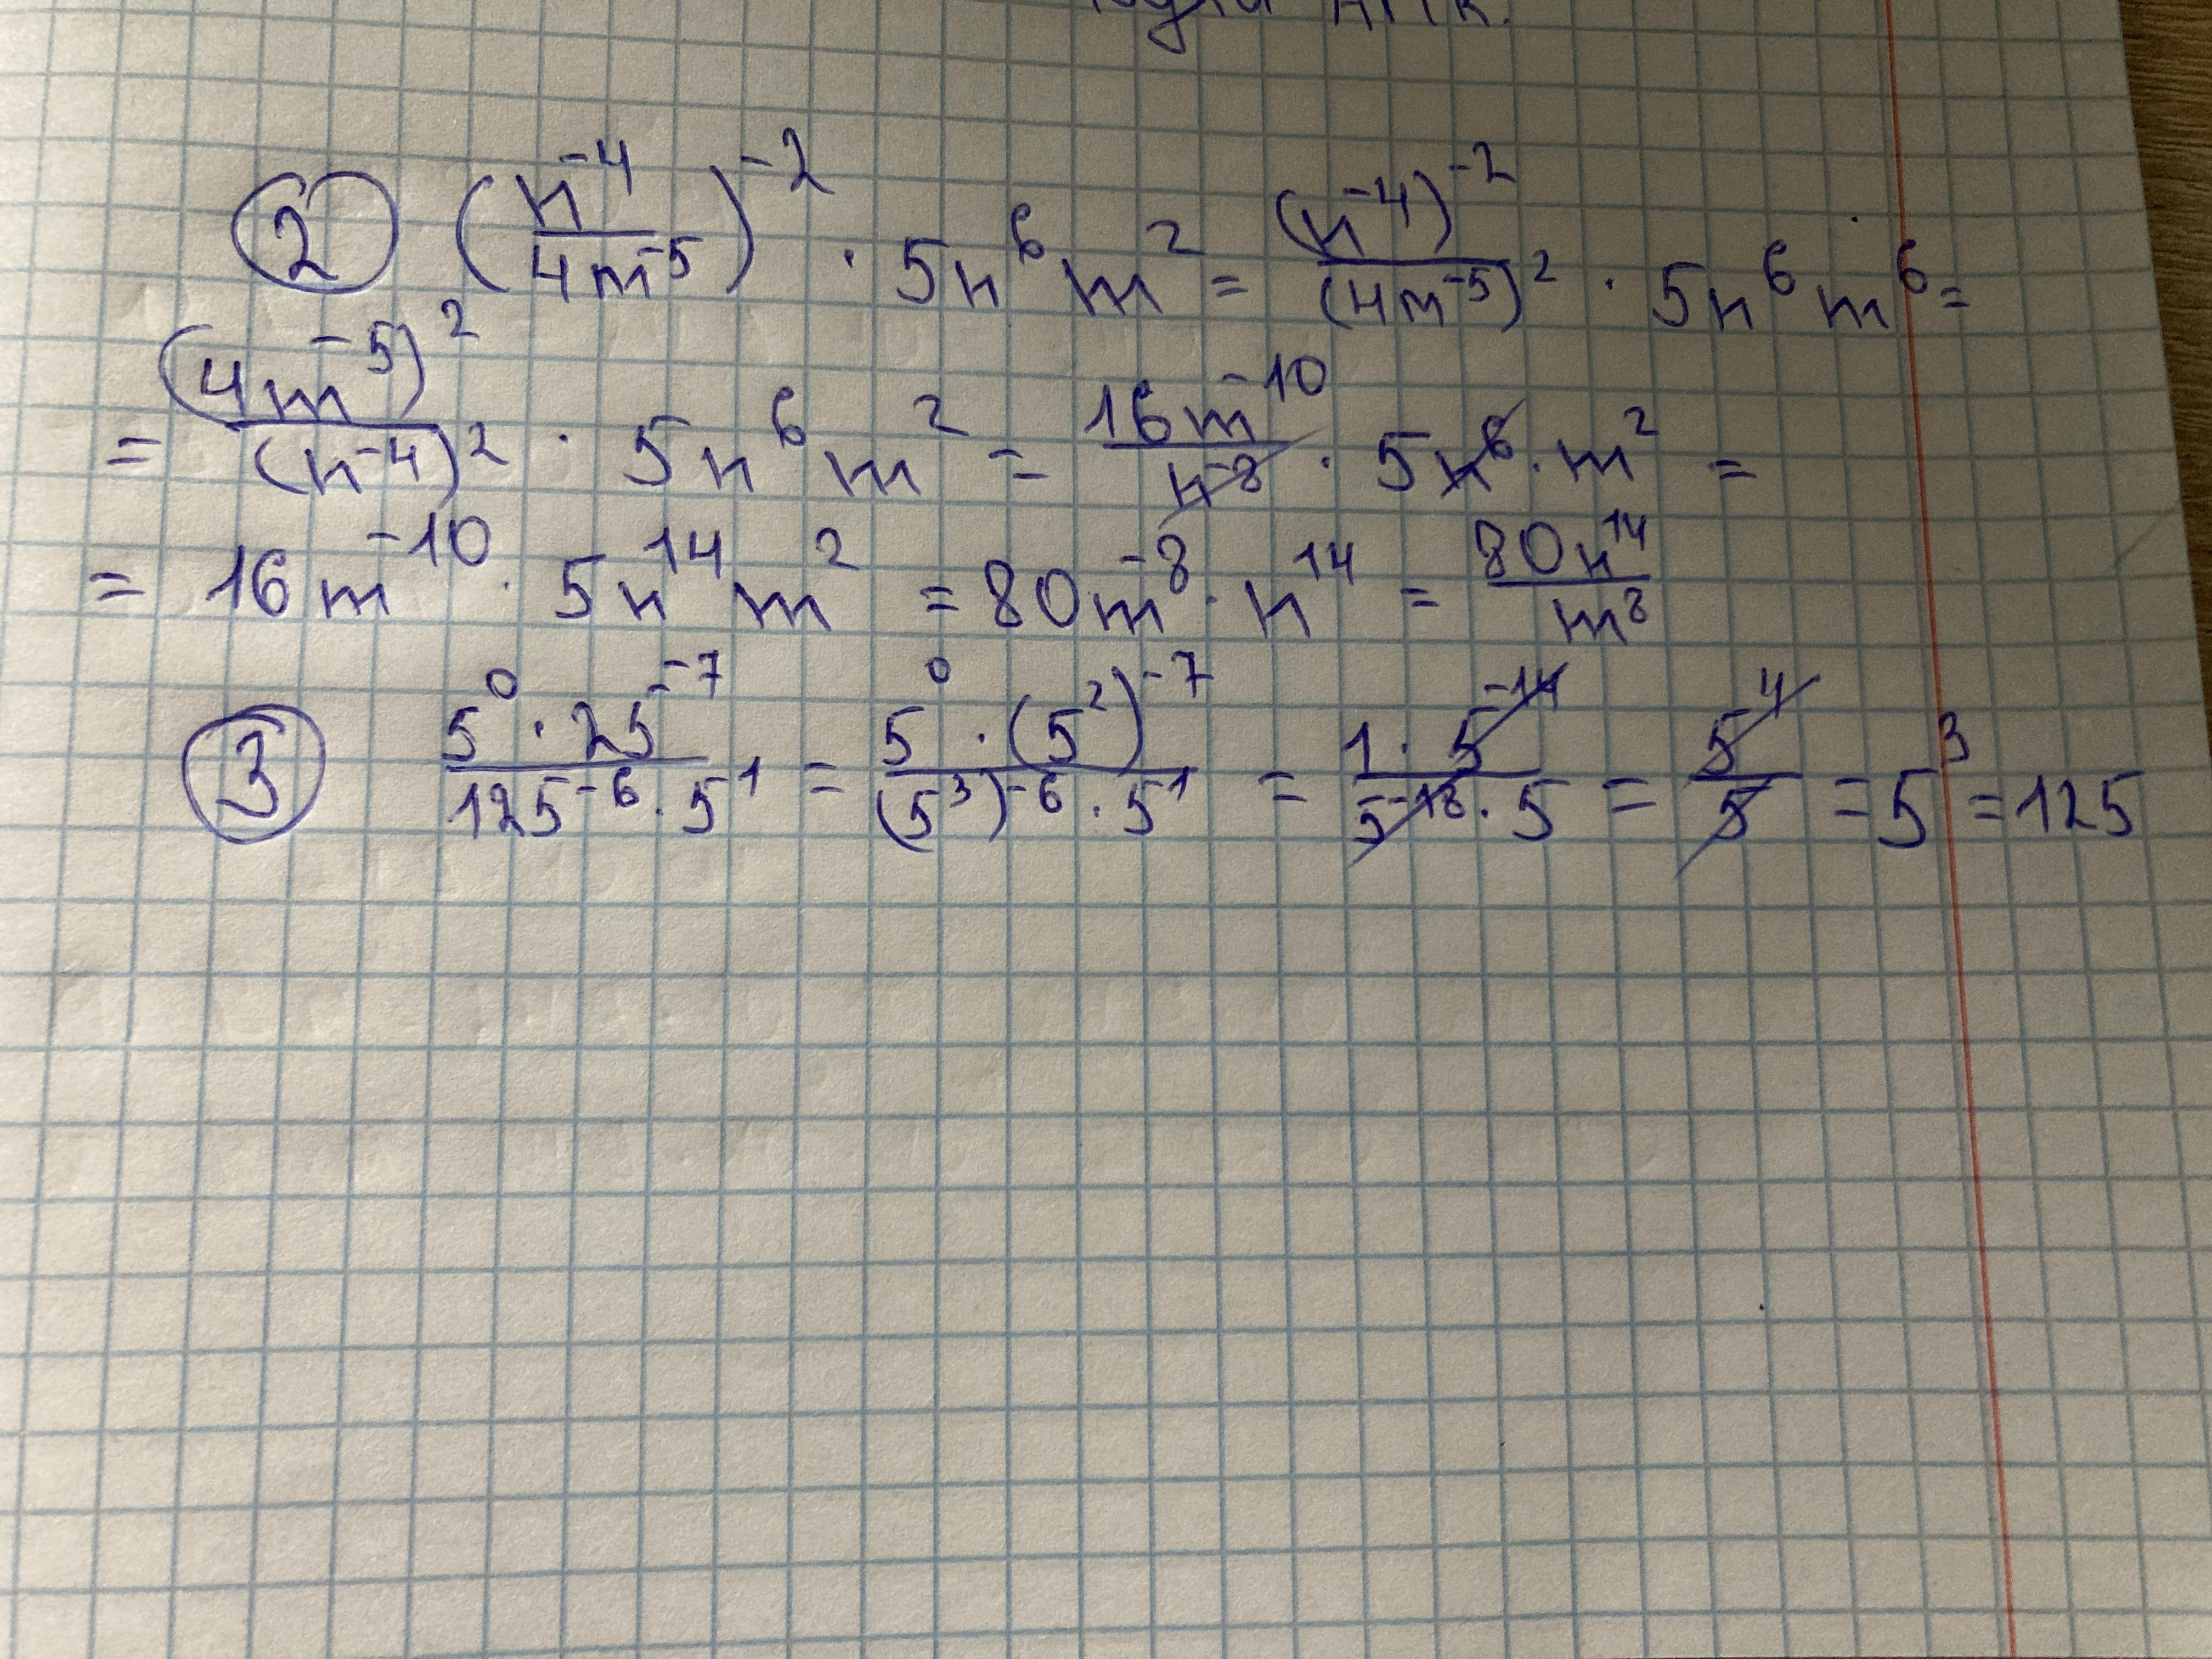 ② (n⁻⁴/4m⁻⁵)⁻² · 5n⁶m² = (n⁻⁴)⁻²/(4m⁻⁵)² · 5n⁶m⁶ =
= (4m⁻⁵)²/(n⁻⁴)² · 5n⁶m² = 16m⁻¹⁰/n⁻⁸ · 5n⁶ · m² =
= 16m⁻¹⁰ · 5n¹⁴m² = 80m⁻⁸ · n¹⁴ = 80n¹⁴/m⁸
③ 5⁰ · 25⁻⁷/125⁻⁶ · 5¹ = 5⁰ · (5²)⁻⁷/(5³)⁻⁶ · 5¹ = 1 · 5⁻¹⁴/5⁻¹⁸ · 5 = 5⁴/5 = 5³ = 125